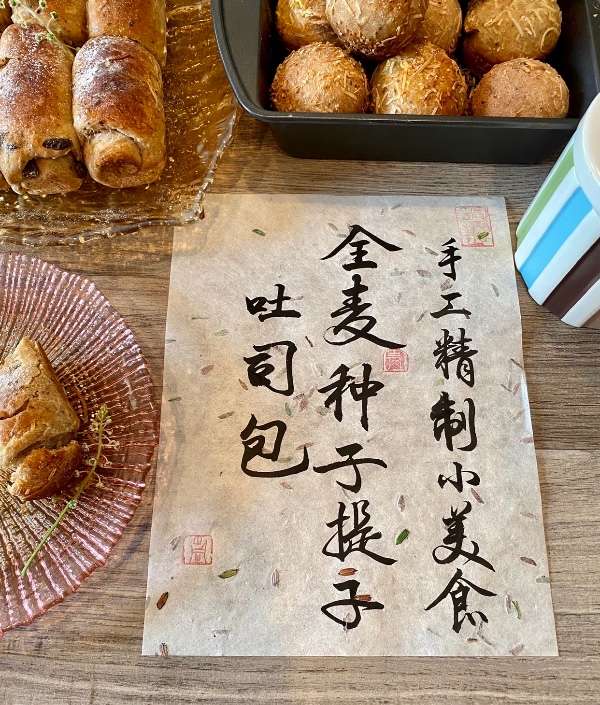 手工精制小美食
全麦种子提子
吐司包